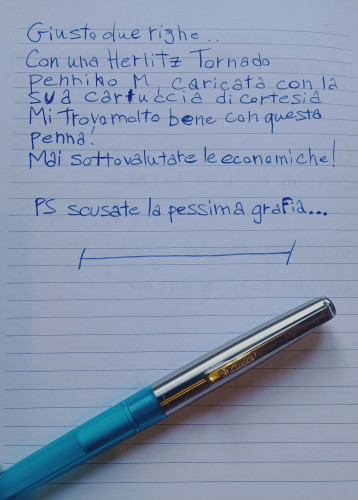 Giusto due righe..
Con una Herlitz Tornado
pennino M, caricata con la
sua cartuccia di cortesia
Mi trovo molto bene con questa
penna!
Mai sottovalutare le economiche!
PS scusate la pessima grafia...